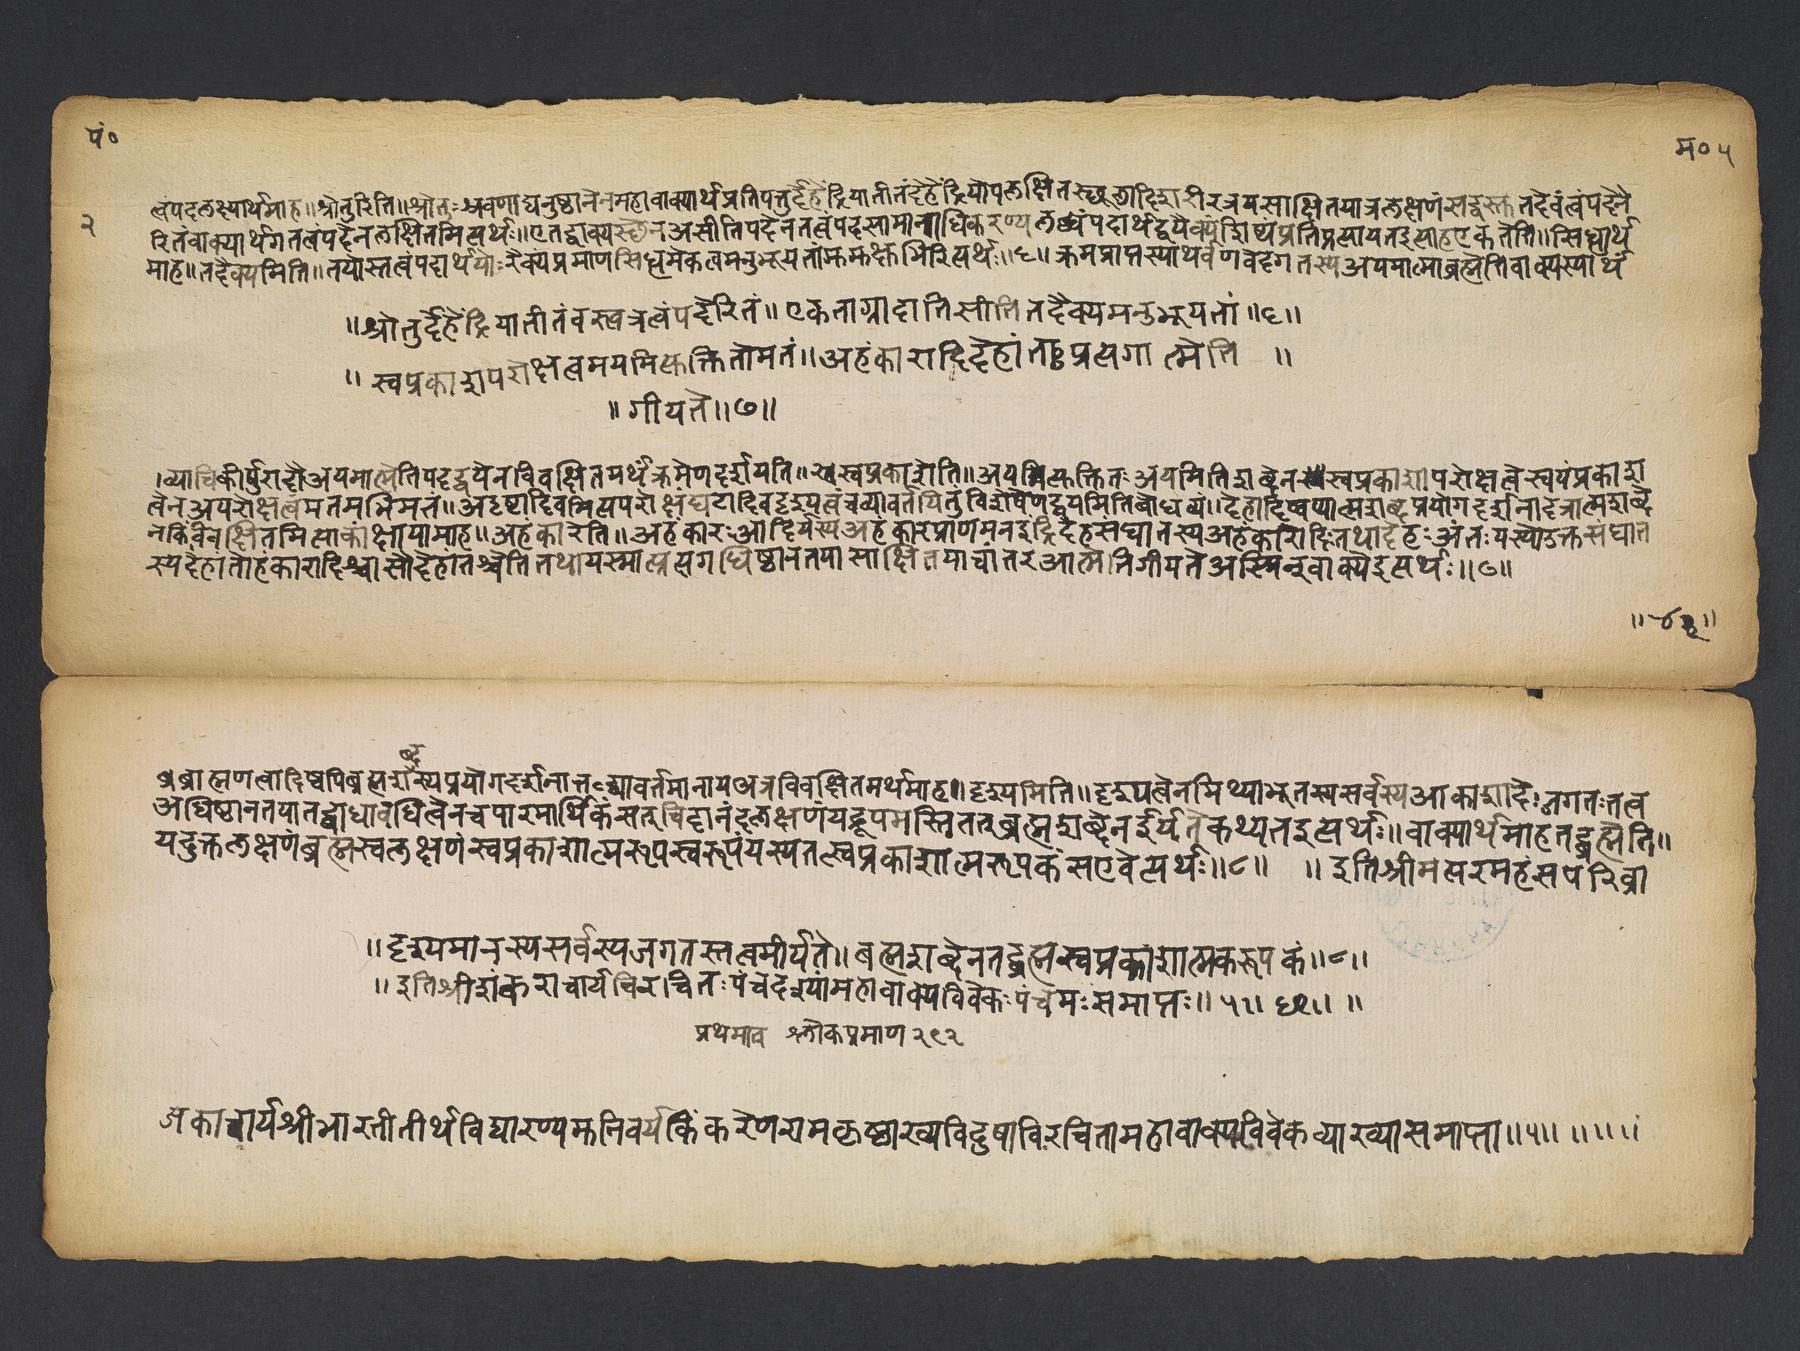 पं०
म० ५
२
त्वंपदलक्ष्यार्थमाह॥श्रोतुरिति॥श्रोतुः श्रवणाद्यनुष्ठानेनमहावाक्यार्थप्रतिपत्तुर्देहेंद्रियातीतंदेहेंद्रियोपलक्षितस्थूलादिशरीरत्रयसाक्षितयात्रलक्षणंसद्वस्तुतदेवंत्वंपदेने
रितंवाक्यार्थगतत्वंपदेनलक्षितमित्यर्थः॥एतद्वाक्यस्थेनअसीतिपदेनतत्वंपदसामानाधिकरण्यलब्धंपदार्थद्वयैक्यंशिष्यंप्रतिप्रत्याय्यतइत्याहएकतेति॥सिद्धार्थ
माह॥तदैक्यमिति॥तयोस्तत्वंपदार्थयोः रैक्यप्रमाणसिद्धमेकत्वमनुभूयतांमुमुक्षुभिरित्यर्थः॥६॥क्रमप्राप्तस्याथर्वणवेदगतस्यअयमात्माब्रह्मेतिवाक्यस्यार्थं
॥श्रोतुर्देहेंद्रियातीतंवस्त्वत्रत्वंपदेरितं॥एकताग्राह्यतेसीतितदैक्यमनुभूयतां॥६॥
॥स्वप्रकाशापरोक्षत्वमयमित्युक्तितोमतं॥अहंकारादिदेहांतात्प्रत्यगात्मेति॥
॥गीयते॥७॥
।व्याचिकीर्षुरादौअयमात्मेतिपदद्वयेनविवक्षितमर्थंक्रमेणदर्शयति॥स्वस्वप्रकाशेति॥अयमित्युक्तितः अयमितिशब्देनस्वस्वप्रकाशापरोक्षत्वंस्वयंप्रकाश
त्वेनअपरोक्षत्वंमतमभिमतं॥अदृष्टादिवन्नित्यपरोक्षंघटादिवदृश्यत्वंचव्यावर्तयितुंविशेषणद्वयमितिबोधव्यं॥देहादिष्वप्यात्मशब्दप्रयोगदर्शनादत्रात्मशब्दे
नकिंविवक्षितमित्याकांक्षायामाह॥अहंकारेति॥अहंकारः आदिर्यस्यअहंकारप्राणमनइंद्रियदेहसंघातस्यअहंकारादिःतथादेहः अंतःयस्योउक्तसंघात
स्यदेहांतोहंकारादिश्चासौदेहांतश्चेतितथायस्मात्प्रत्यगधिष्ठानतयासाक्षितयाचांतरआत्मेतिगीयतेअस्मिन्वाक्येइत्यर्थः॥७॥
ब्द
ब्राह्मणत्वादिष्वपिब्रह्मशस्यप्रयोगदर्शनात्तद्व्यावर्तमानायअत्रविवक्षितमर्थमाह॥दृश्यमिति॥दृश्यत्वेनमिथ्याभूतस्यसर्वस्यआकाशादेःजगतःतत्व
अधिष्ठानतयातद्बाधावधित्वेनचपारमार्थिकंसत्चिदानंदलक्षणंयद्रूपमस्तितत्ब्रह्मशब्देनईर्यतेकथ्यतइत्यर्थः॥वाक्यार्थमाहतद्ब्रह्मेति॥
यदुक्तलक्षणंब्रह्मस्वलक्षणंस्वप्रकाशात्मरूपंस्वरूपंयस्यतत्स्वप्रकाशात्मरूपकंसएवेत्यर्थः॥८॥ ॥इतिश्रीमत्परमहंसपरिव्रा
॥दृश्यमानस्यसर्वस्यजगतस्तत्वमीर्यते॥ब्रह्मशब्देनतद्ब्रह्मस्वप्रकाशात्मकरूपकं॥८॥
॥इतिश्रीशंकराचार्यविरचितःपंचदश्यांमहावाक्यविवेकःपंचमःसमाप्तः॥५॥
श्लोकप्रमाण २९२
जकाचार्यश्रीभारतीतीर्थविद्यारण्यमुनिवर्यकिंकरेणरामकृष्णाख्यविदुषाविरचितामहावाक्यविवेकव्याख्यासमाप्ता॥५॥